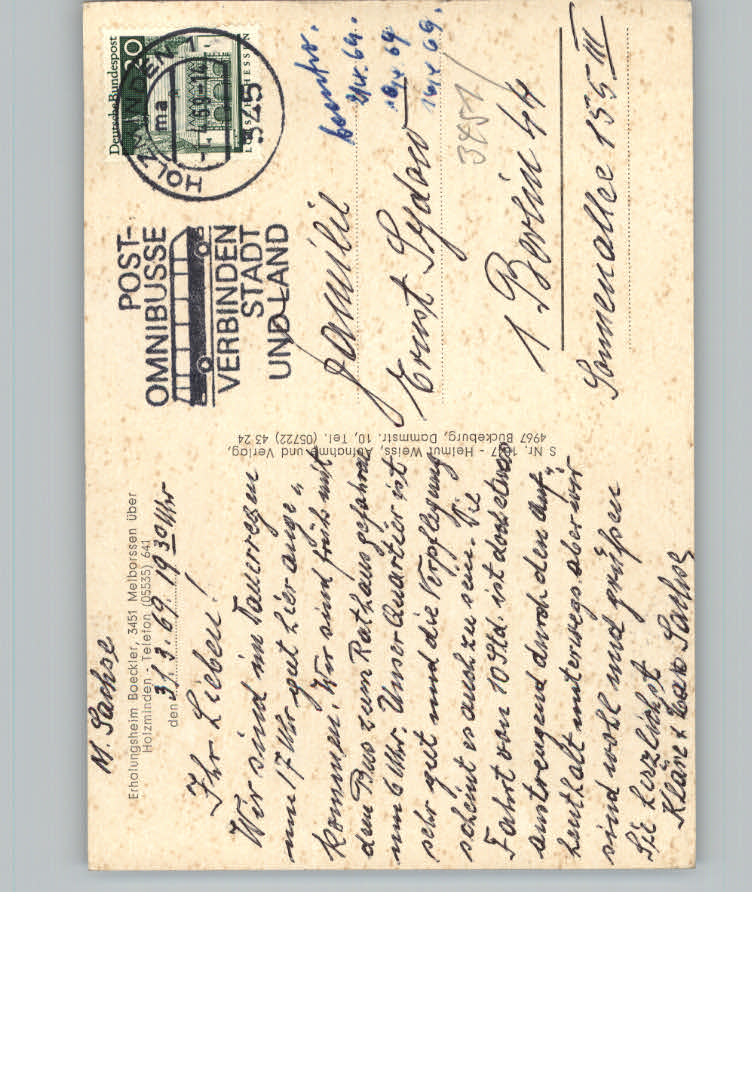 M. Sachse
Erholungsheim Boeckler, 3451 Meiborssen über
Holzminden - Telefon (05535) 641
den 31.3.69. 19 30 Uhr
Ihr Lieben!
Wir sind im Dauerregen
um 17 Uhr gut hier ange=
kommen. Wir sind früh mit
dem Bus zum Rathaus gefahren
um 6 Uhr. Unser Quartier ist
sehr gut und die Verpflegung
scheint es auch zu sein. Die
Fahrt von 10 Std. ist doch etwas
anstrengend durch den Auf=
henthalt unterwegs aber wir
sind wohl und grüßen
Sie herzlichst
Kläre & Max Sachse
S Nr. - Helmut Weiss, Aufnahme und Verlag,
4967 Bückeburg, Dammstr. 10, Tel. (05722) 43 24
POST-
OMNIBUSSE
VERBINDEN
STADT
UND LAND
HOLZMINDEN 1
ma
345
Deutsche Bundespost
20
LORSCH/HESSEN
beantw.
16.4.69.
3451
Familie
Ernst Sydow
1 Berlin 44
Sonnenallee 155 III